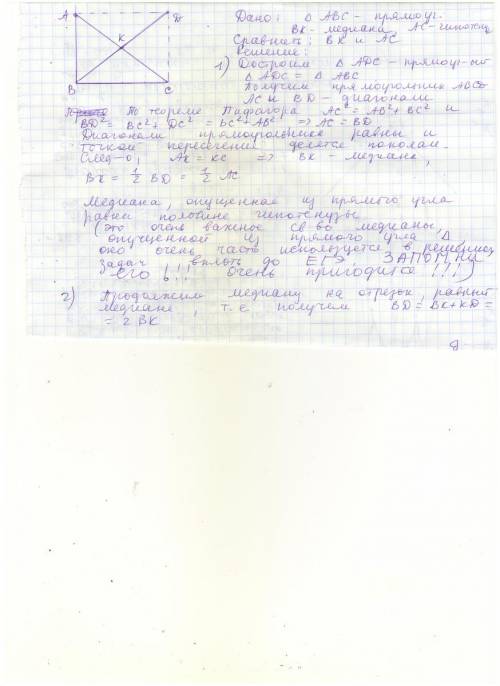 A D
K
B C
Дано: Δ ABC - прямоуг.
BK - медиана, AC - гипотенуз
Сравнить: BK и AC
Решение:
1) Достроим Δ ADC - прямоуг-ый
Δ ADC = Δ ABC
Получим прямоугольник ABCD
AC и BD - диагонали
По теореме Пифагора AC² = AB² + BC² и
BD² = BC² + DC² = BC² + AB² => AC = BD
Диагонали прямоугольника равны и
точкой пересечения делятся пополам.
След-о, AK = KC => BK - медиана,
BK = 1/2 BD = 1/2 AC
Медиана, опущенная из прямого угла
равна половине гипотенузы
(это очень важное св-во медианы,
опущенной из прямого угла Δ
оно очень часто используется в решении
задач вплоть до ЕГЭ. ЗАПОМНИ
его !!! Очень пригодится !!!)
2) Продолжим медиану на отрезок, равный
медиане, т.е. получим BD = BK + KD =
= 2 BK